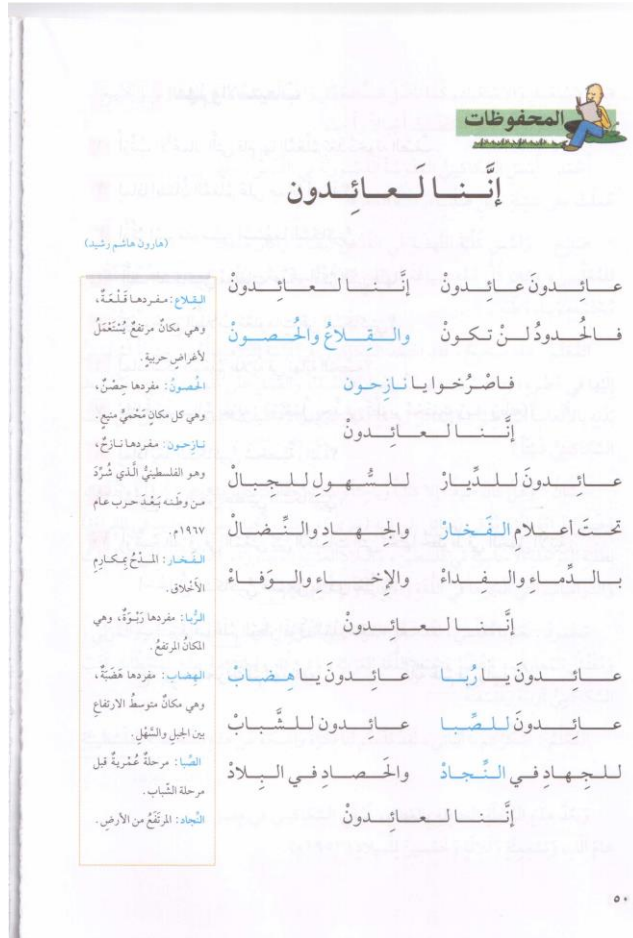 المحفوظات
إنَّنا لَعائِدون
(هارون هاشم رشيد)
عائِدونَ عائِدونْ إنَّنا لعائِدونْ
فالحُدودُ لنْ تكونْ والقِلاعُ والحُصونْ
فاصْرُخوا يا نازِحون
إنَّنا لعائِدونْ
عائِدونَ للدِّيارْ للسُّهول للجبالْ
تحتَ أعلام الفَخارْ والجهادِ والنِّضالْ
بالدِّماء والفداءْ والإخاءِ والوَفاءْ
إنَّنا لعائِدونْ
عائِدونَ يا رُبَا عائِدونَ يا هِضابْ
عائِدونْ للصِّبا عائِدون للشَّبابْ
للجهادِ في النِّجادْ والحَصادِ في البِلادْ
إنَّنا لعائِدونْ
القِلاع: مفردها قَلْعَةٌ،
وهي مكانٌ مرتفعٌ يُسْتَعْمَلُ
لأغراضٍ حربيةٍ.
الحُصونُ: مفردها حِصْنٌ،
وهي كل مكانٍ مَحْميٍّ منيعٍ.
نازحون: مفردها نازحٌ،
وهو الفلسطينيُّ الَّذي شُرِّدَ
من وطنه بَعْدَ حرب عام
١٩٦٧م.
الفَخار: المدْحُ بمكارِمِ
الأخلاق.
الرُّبا: مفردها رَبْوَةٌ، وهي
المكانُ المرتفعُ.
الهِضاب: مفردها هَضَبَةٌ،
وهي مكانٌ متوسطُ الارتفاعِ
بين الجبلِ والسَّهْلِ.
الصِّبا: مرحلةٌ عُمْريةٌ قبل
مرحلة الشّباب.
النِّجاد: المرتَفَعُ من الأرضِ.
٥٠